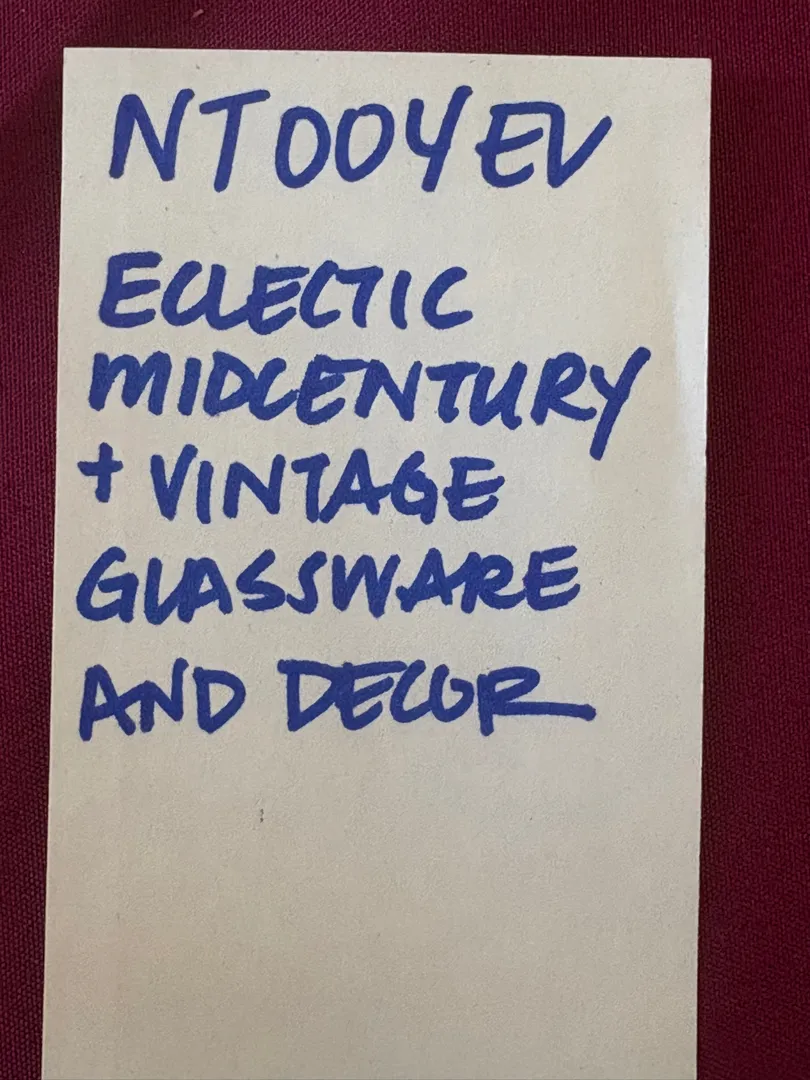 NTOOYEV
ECLECTIC
MIDCENTURY
+ VINTAGE
GLASSWARE
AND DECOR